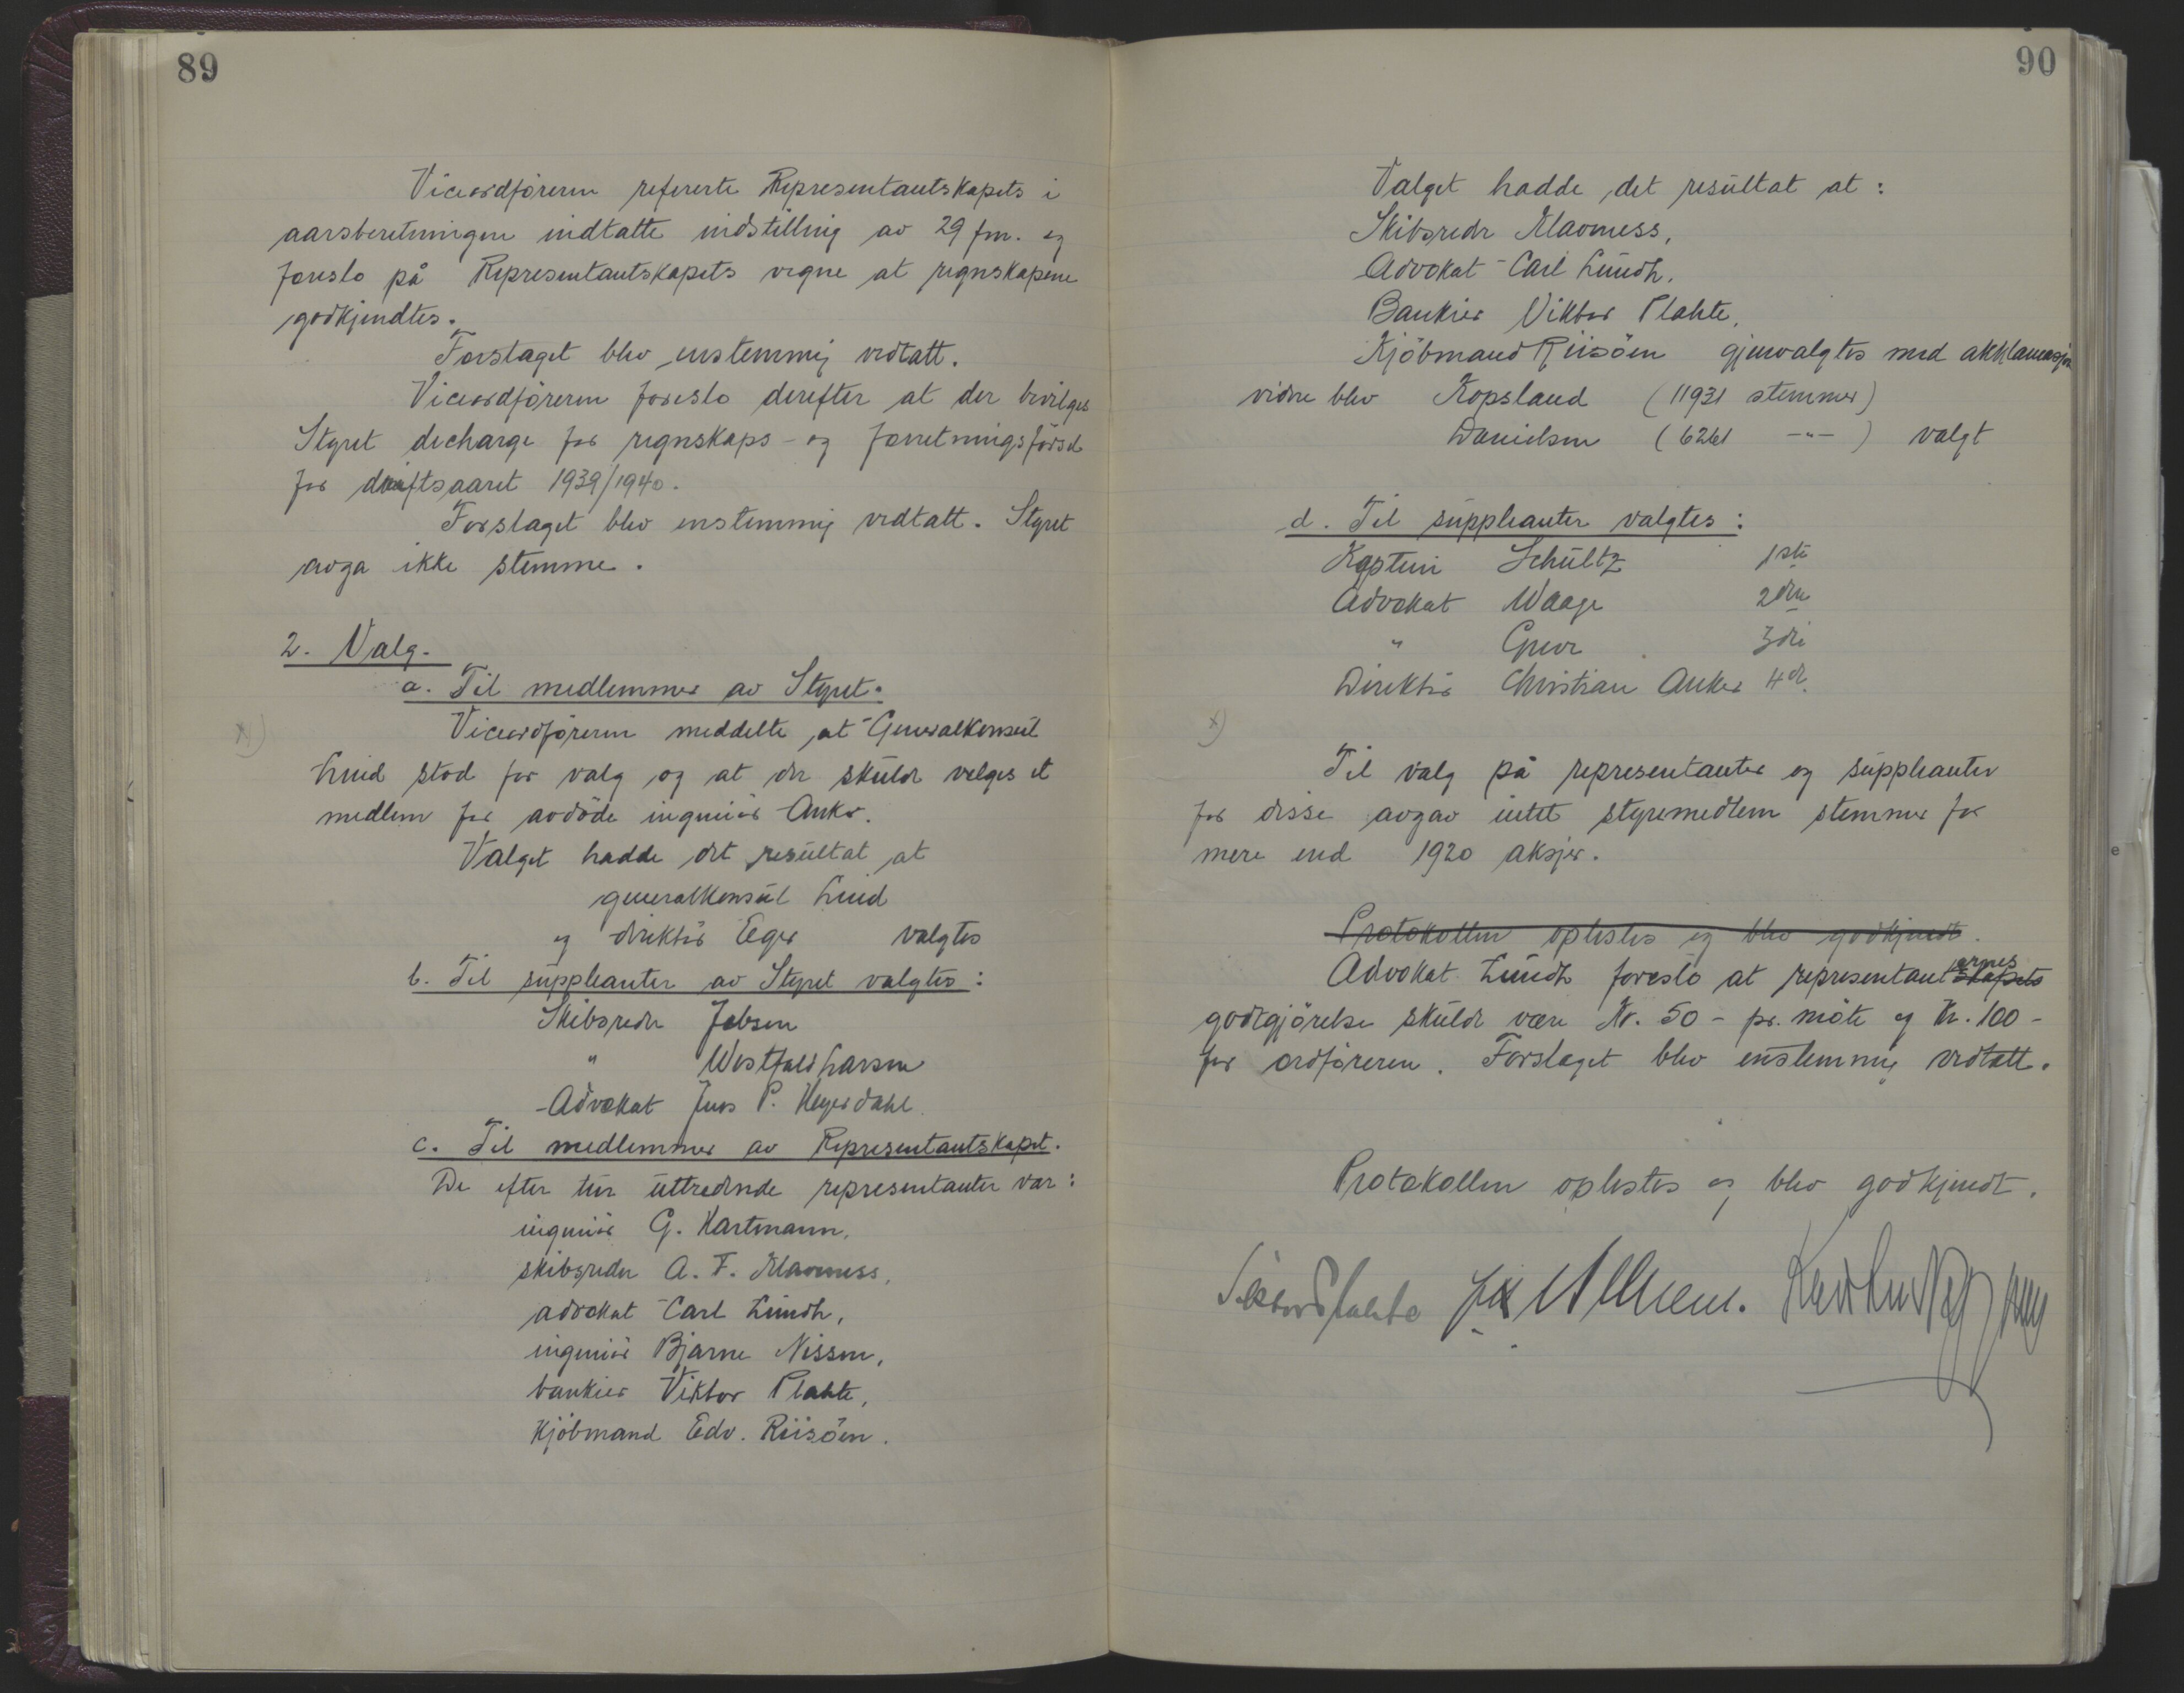 89
Viceordföreren refererte Representantskapets i
aarsberetningen indtatte indstilling av 29 fm. og
foreslo på Representantskapets vegne at regnskapene
godkjendtes.
Forslaget blev enstemmig vedtatt.
Viceordföreren foreslo derefter at der bevilges
Styret decharge for regnskaps- og forretningsförsel
for driftsaaret 1939/1940.
Forslaget blev enstemmig vedtatt. Styret
avga ikke stemme.
2. Valg.
a. Til medlemmer av Styret.
Viceordföreren meddelte at Generalkonsul
x)
Lind stod for valg og at der skulde velges et
medlem for avdöde ingeniör Anker.
Valget hadde det resultat at
generalkonsul Lind
og direktör Eger valgtes
b. Til suppleanter av Styret valgtes:
Skibsreder Jebsen
" Westfal Larsen
Advokat Jens P. Heyerdahl
c. Til medlemmer av Representantskapet.
De efter tur uttredende representanter var:
ingeniör G. Hartmann,
skibsreder A. F. Klaveness,
advokat Carl Lundh,
ingeniör Bjarne Nissen,
bankier Viktor Plahte,
Kjöbmand Edv. Riisöen.
90
Valget hadde det resultat at:
Skibsreder Klaveness,
Advokat Carl Lundh,
Bankier Viktor Plahte,
Kjöbmand Riisöen gjenvalgtes med akklamasjon
videre blev Kopsland (11931 stemmer)
Danielsen (6261 -"-) valgt
d. Til suppleanter valgtes:
Kaptein Schultz 1ste
Advokat Waage 2den
" Greve 3die
Direktör Christian Anker 4de
x)
Til valg på representanter og suppleanter
for disse avgav intet styremedlem stemmer for
mere end 1920 aksjer.
Protokollen oplestes og blev godkjendt.
Advokat Lundh foreslo at representantskapets ernes
godtgjörelse skulde være Kr. 50 - pr. möte og Kr. 100 -
for ordföreren. Forslaget blev enstemmig vedtatt.
Protokollen oplestes og blev godkjendt.